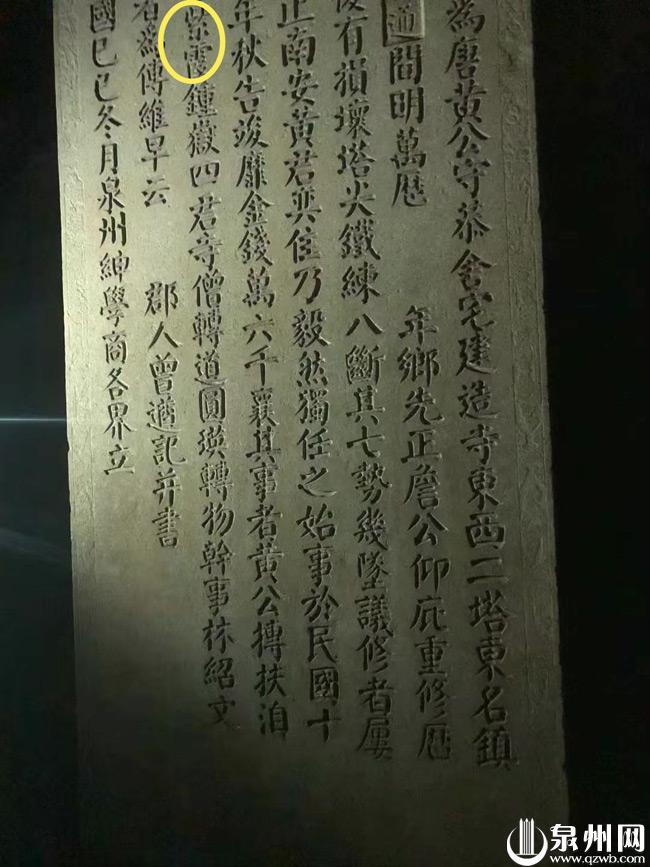 為唐黃公守恭舍宅建造寺東西二塔東名鎮
通間明萬曆 年鄉先正詹公仰庇重修曆
有損壞塔尖鐵練八斷其七勢幾墜議修者屢
正南安黃君奕住乃毅然獨任之始事於民國十
年秋告竣靡金錢萬六千襄其事者黃公摶扶洎
紫霞鍾嶽四君寺僧轉道圓瑛轉物幹事林紹文
者為傅維早云 郡人曾遒記并書
國己巳冬月泉州紳學商各界立
泉州网
www.qzwb.com